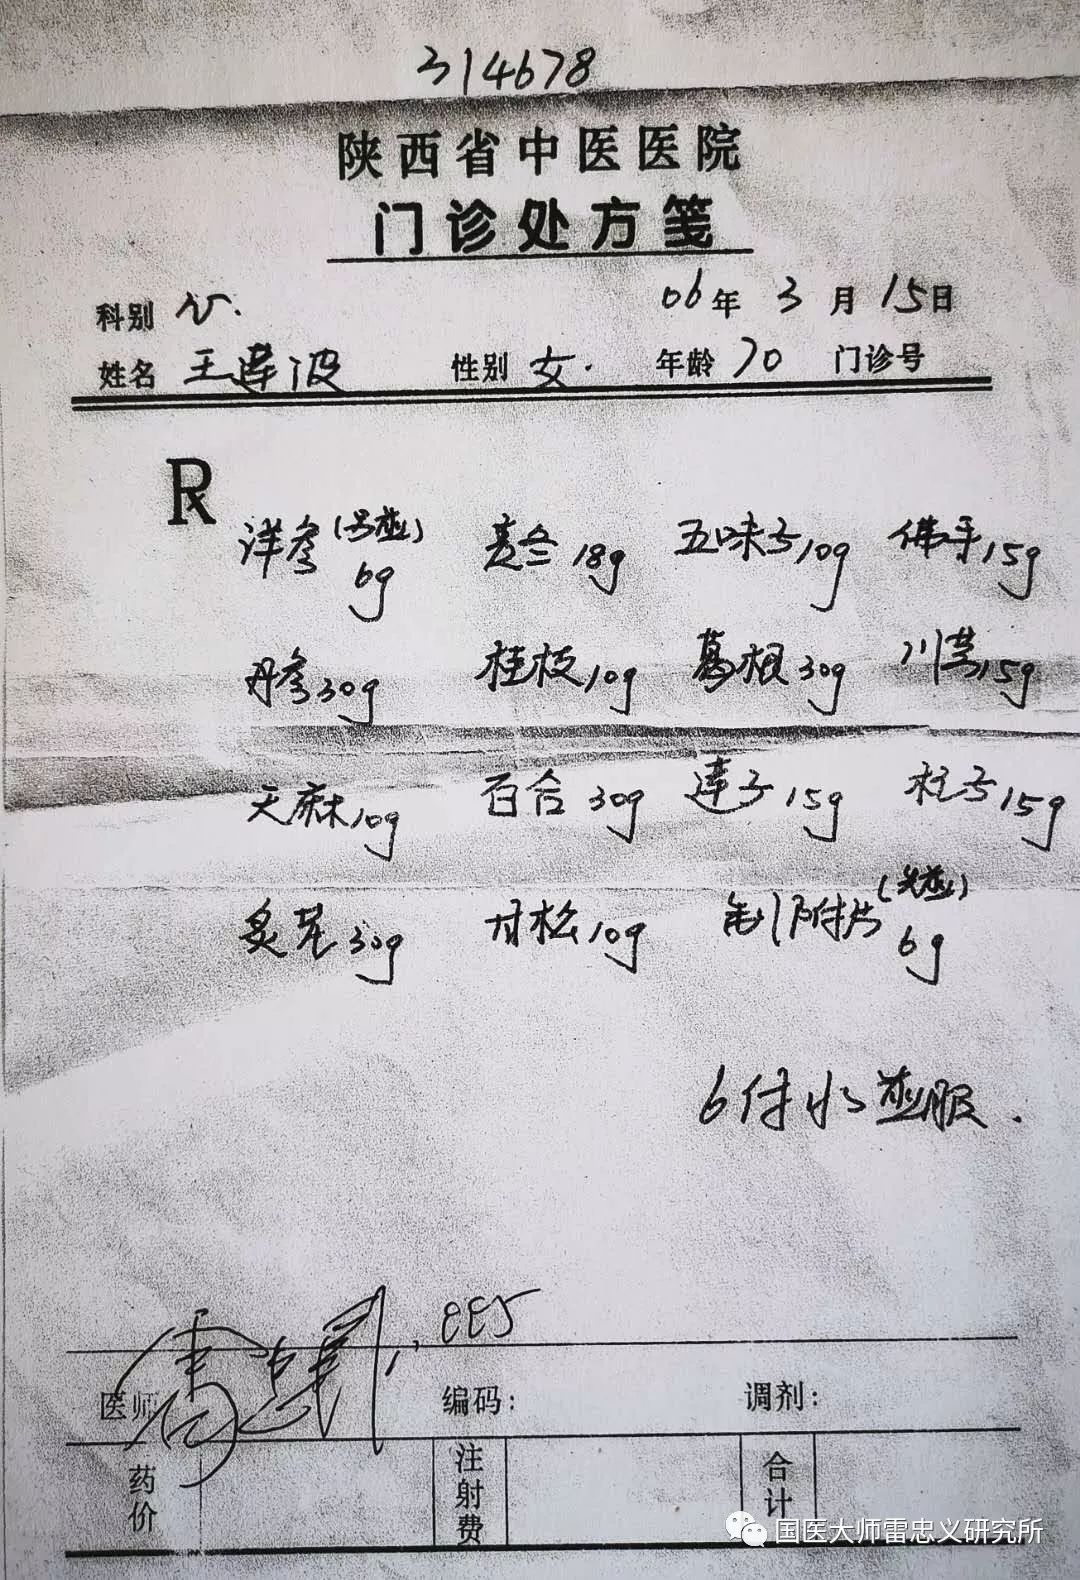 314678
陕西省中医医院
门诊处方笺
科别 心. 06年 3月 15日
姓名 王莲波 性别 女. 年龄 70 门诊号
R
洋参(另煎)6g 麦冬18g 五味子10g 佛手15g
丹参30g 桂枝10g 葛根30g 川芎15g
天麻10g 百合30g 莲子15g 枉子15g
炙芪30g 甘松10g 制附片(先煎)6g
6付 水煎服.
医师 雷忠义 885
编码: 调剂:
药价 注射费 合计
国医大师雷忠义研究所